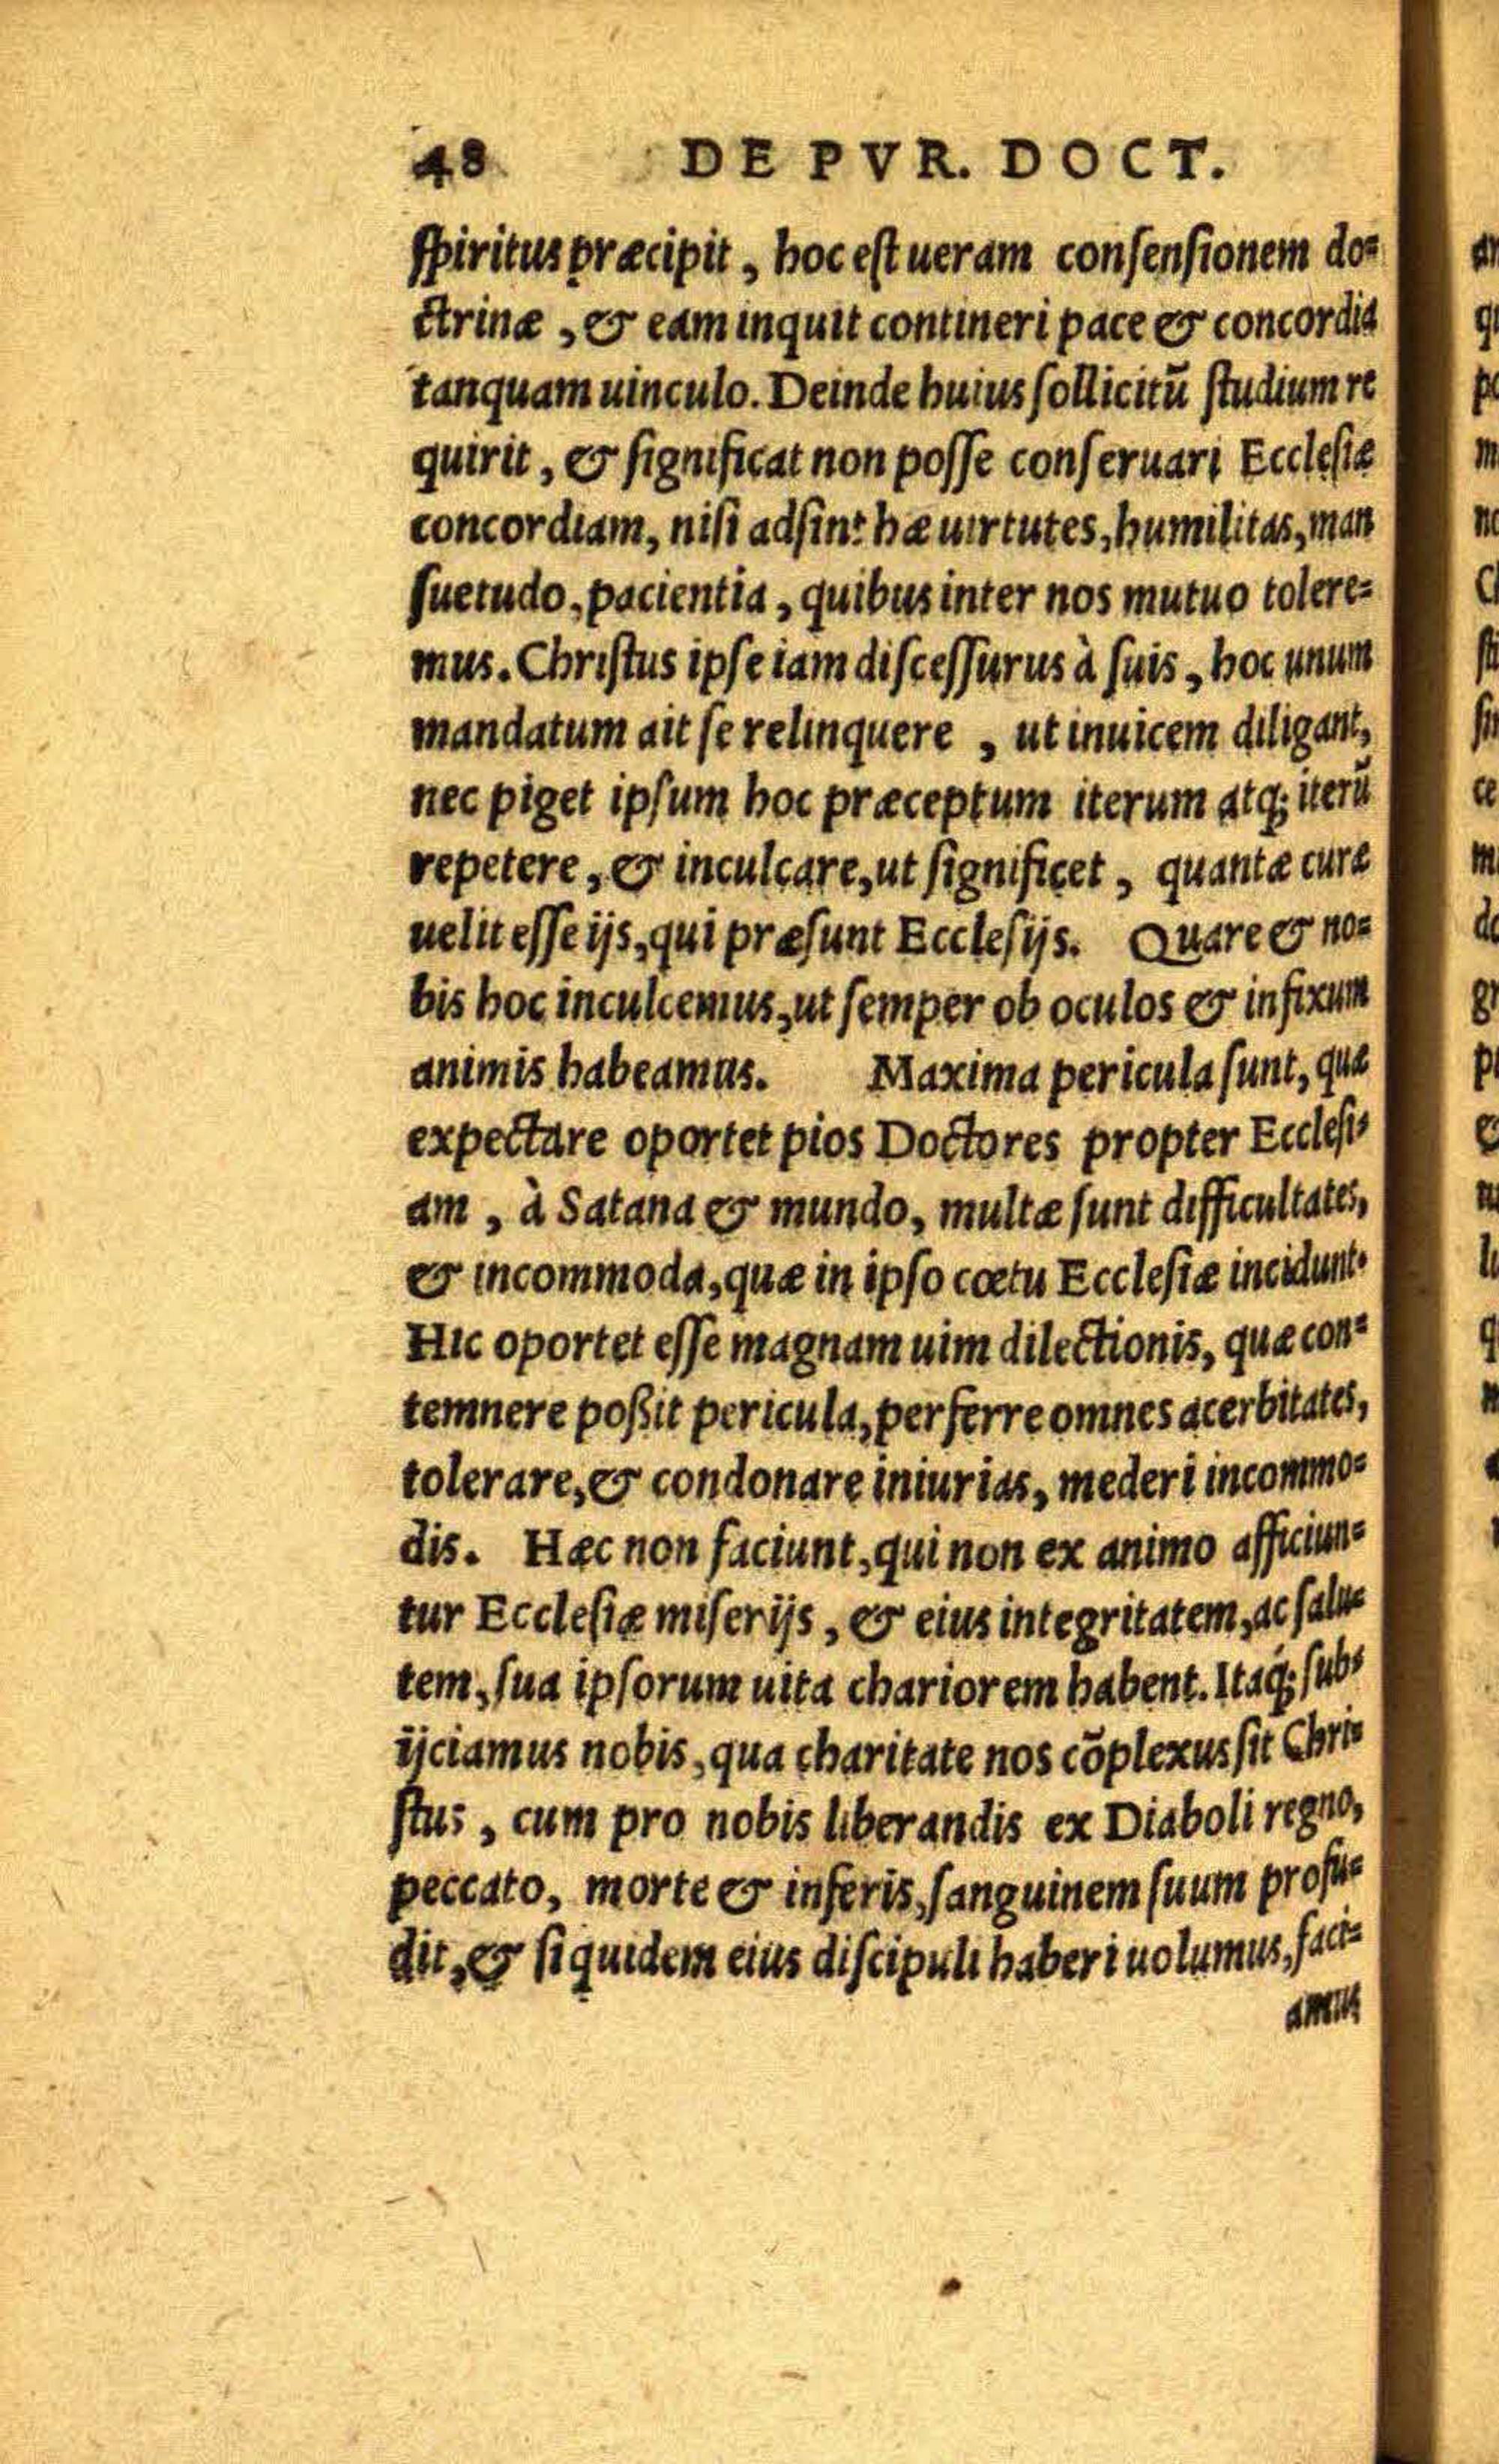 48 DE PVR. DOCT.
ſpiritus præcipit, hoc eſt ueram conſenſionem do=
ctrinæ, & eam inquit contineri pace & concordia
tanquam uinculo. Deinde huius ſollicitũ ſtudium re
quirit, & ſignificat non poſſe conſeruari Eccleſiæ
concordiam, niſi adſint hæ uirtutes, humilitas, man
ſuetudo, pacientia, quibus inter nos mutuo tolere=
mus. Chriſtus ipſe iam diſceſſurus à ſuis, hoc unum
mandatum ait ſe relinquere, ut inuicem diligant,
nec piget ipſum hoc præceptum iterum atq; iterũ
repetere, & inculcare, ut ſignificet, quantæ curæ
uelit eſſe ijs, qui præſunt Eccleſijs. Quare & no=
bis hoc inculcemus, ut ſemper ob oculos & infixum
animis habeamus. Maxima pericula ſunt, quæ
expectare oportet pios Doctores propter Eccleſi=
am, à Satana & mundo, multæ ſunt difficultates,
& incommoda, quæ in ipſo cœtu Eccleſiæ incidunt.
Hic oportet eſſe magnam uim dilectionis, quæ con=
temnere poßit pericula, perferre omnes acerbitates,
tolerare, & condonare iniurias, mederi incommo=
dis. Hæc non faciunt, qui non ex animo afficiun=
tur Eccleſiæ miſerijs, & eius integritatem, ac ſalu=
tem, ſua ipſorum uita chariorem habent. Itaq; ſub=
ijciamus nobis, qua charitate nos cõplexus ſit Chri=
ſtus, cum pro nobis liberandis ex Diaboli regno,
peccato, morte & inferis, ſanguinem ſuum profu=
dit, & ſi quidem eius diſcipuli haberi uolumus, faci=
amus